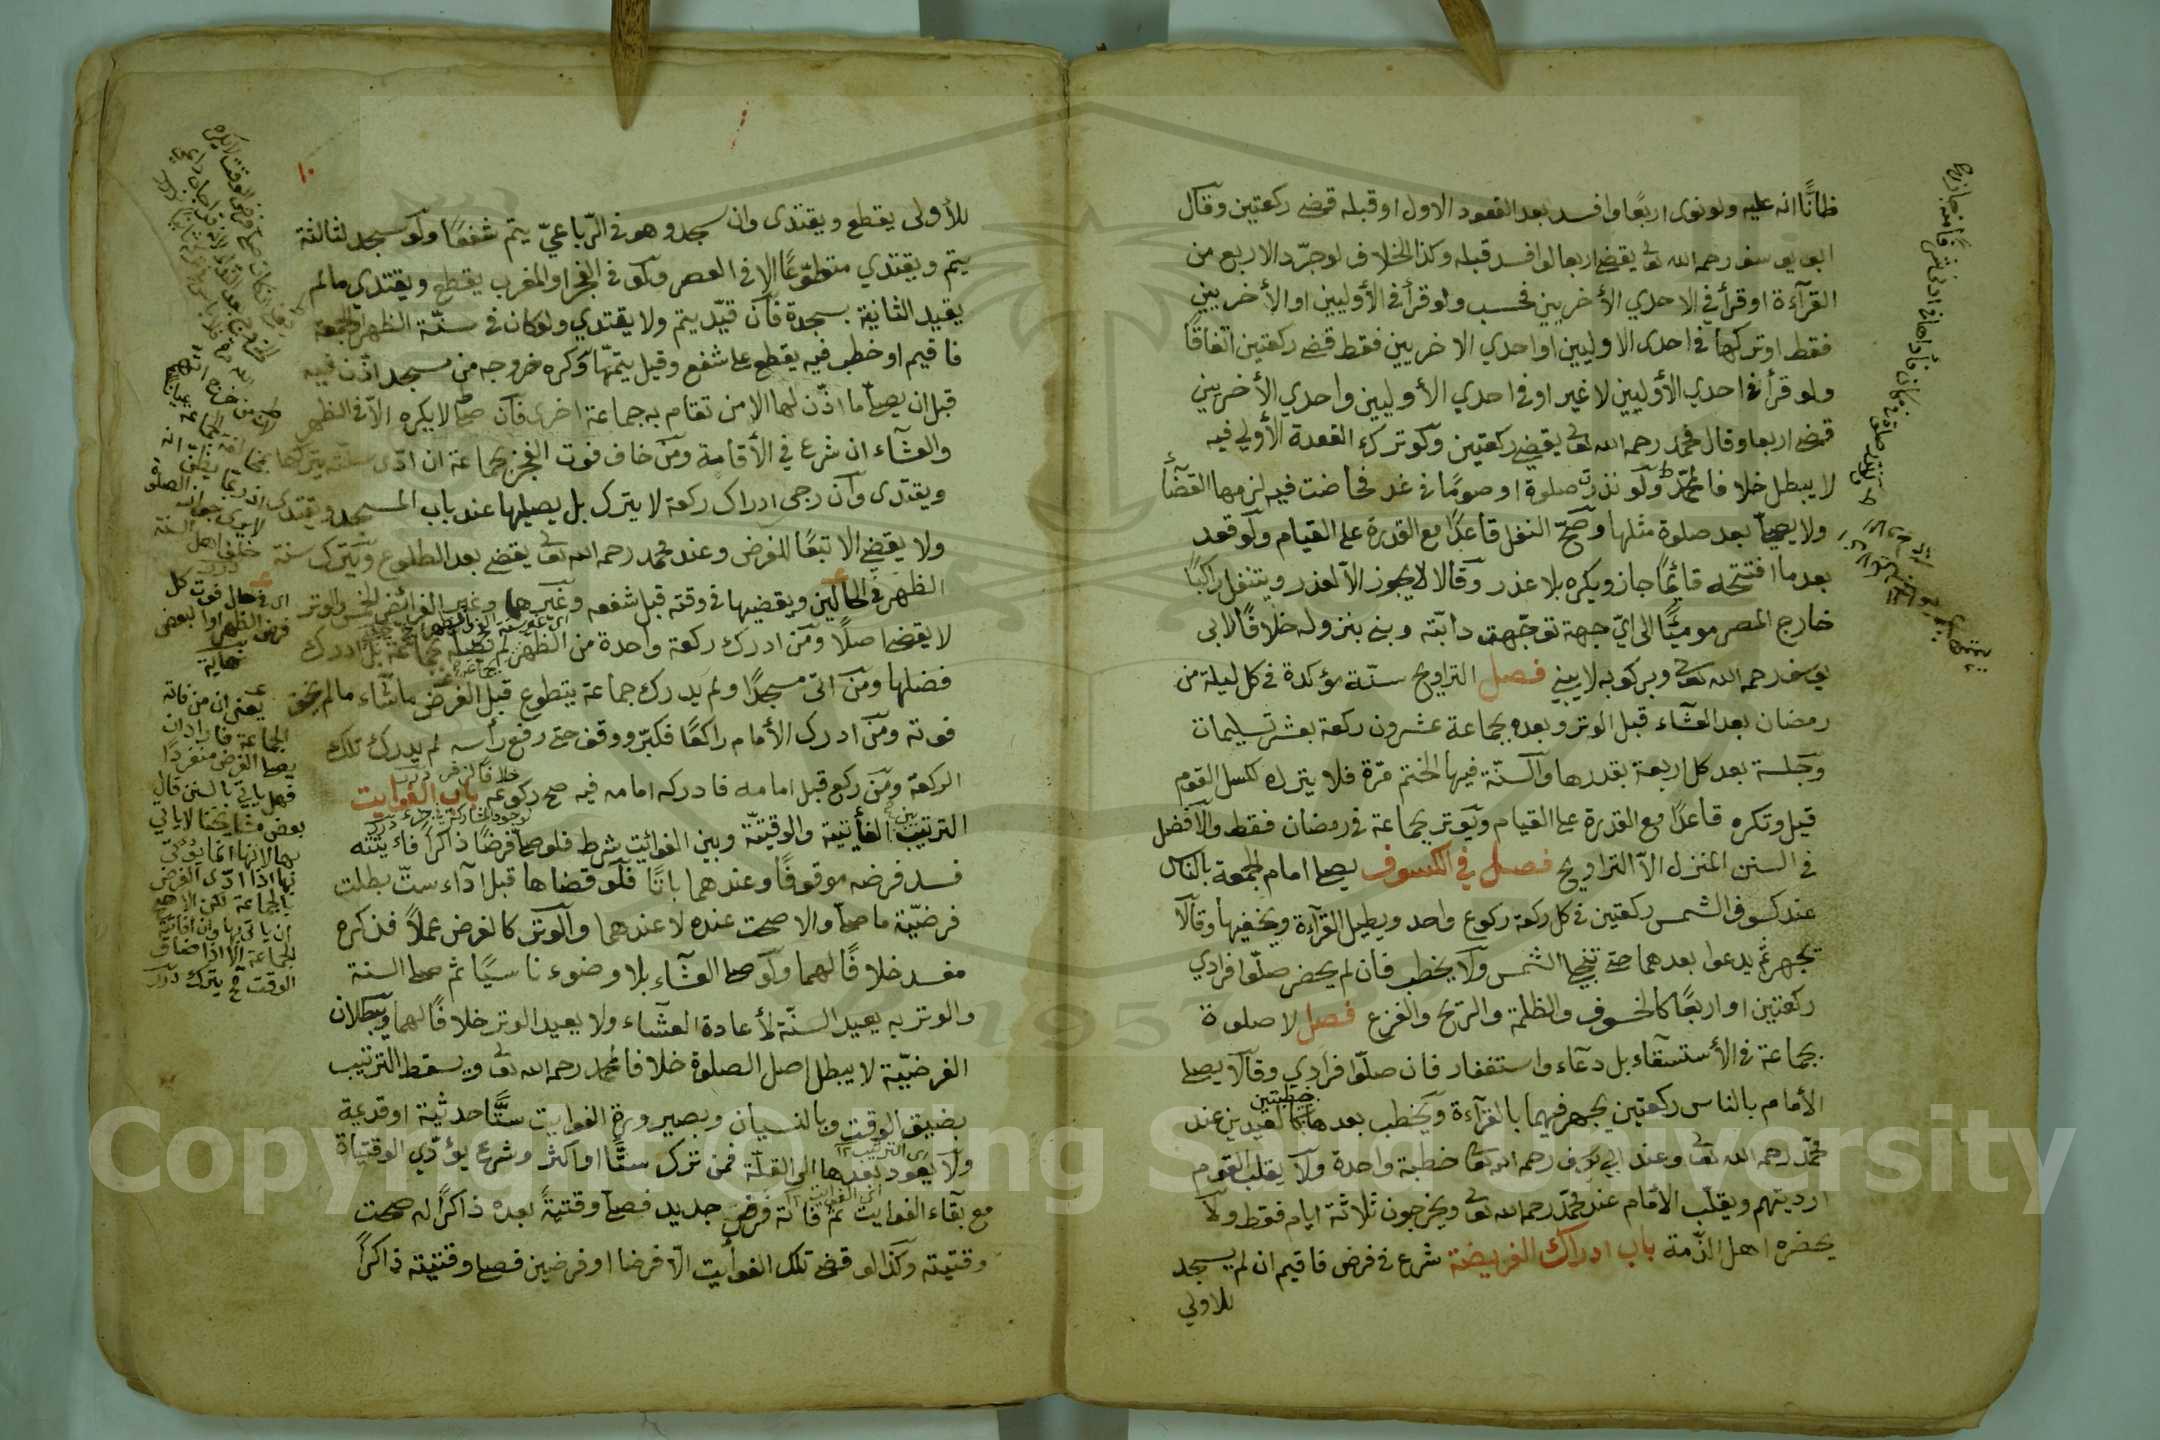 ظانًّا انه عليه ولو نوى اربعًا وافسد بعد القعود الاول او قبله قضى ركعتين وقال
ابو يوسف رحمه الله تعالى يقضى اربعا لو افسد قبله وكذا الخلاف لو جرّد الاربع من
القرآءة او قرأ في احدي الأخريين فحسب ولو قرأ في الأوليين او الأخريين
فقط او تركها في احدى الاوليين او احدي الاخريين فقط قضى ركعتين اتفاقًا
ولو قرأ في احدي الأوليين لا غير او في احدي الأوليين واحدي الأخريين
قضى اربعا وقال محمد رحمه الله تعالى يقضي ركعتين ولو ترك القعدة الأولي فيه
لا يبطل خلافا لمحمّد ولو نذرت صلوة او صومًا في غد فحاضت فيه لزمها القضآء
ولا يصلى بعد صلوة مثلها وصحّ النفل قاعدًا مع القدرة على القيام ولو قعد
بعد ما افتتحه قائمًا جاز ويكره بلا عذر وقالا لا يجوز الّا لعذر ويتنفل راكبًا
خارج المصر موميًّا الى ايّ جهة توجّهت دابّته وبنى بنزوله خلافًا لابى
يوسف رحمه الله تعالى وبركوبه لا يبني فصل التراويح سنّة مؤكدة في كل ليلة من
رمضان بعد العشاء قبل الوتر وبعده بجماعة عشرون ركعة بعشر تسليمات
وجلسة بعد كل اربعة بقدرها والسنّة فيها الختم مرّة فلا يترك لكسل القوم
قيل وتكره قاعدًا مع القدرة على القيام ويوتر بجماعة في رمضان فقط والأفضل
في السنن المنزل الّا التراويح فصل في الكسوف يصلى امام الجمعة بالناس
عند كسوف الشمس ركعتين في كل ركعة ركوع واحد ويطيل القرآءة ويخفيها وقالا
يجهر ثم يدعوا بعدهما حتى تنجلى الشمس ولا يخطب فان لم يحضر صلّوا فرادي
ركعتين او اربعًا كالخسوف والظلمة والريح والفزع فصل لا صلوة
بجماعة في الأستسقاء بل دعآء واستغفار فان صلّوا فرادي وقالا يصلى
الأمام بالناس ركعتين يجهر فيهما بالقرآءة ويخطب بعدها خطبتين كالعيدين عند
محمّد رحمه الله تعالى وعند ابي يوسف رحمه الله تعالى خطبة واحدة ولا يقلب القوم
ارديتهم ويقلّب الأمام عند محمّد رحمه الله تعالى ويخرجون ثلاثة ايام فقط ولا
يحضره اهل الذّمة باب ادراك الفريضة شرع في فرض فاقيم ان لم يسجد
للاولي
للأولى يقطع ويقتدى وان سجد وهو في الرّباعيّ يتم شفعًا ولو سجد لثالثة
يتم ويقتدي متطوّعًا الا في العصر ولو في الفجر او المغرب يقطع ويقتدي مالم
يقيد الثانية بسجدة فأن قيّد يتم ولا يقتدي ولو كان في سنّة الظهر او الجمعة
فاقيم او خطب فيه يقطع على شفع وقيل يتمّها وكره خروجه من مسجد اذّن فيه
قبل ان يصلى ما اذّن لها الا من تقام به جماعة اخرى فأن صلى لا يكره الّا في الظهر
والعشآء ان شرع في الأقامة ومن خاف فوت الفجر بجماعة ان ادّى سنّته يتركها
ويقتدى وان رجى ادراك ركعة لا يترك بل يصليها عند باب المسجد ويقتدى
ولا يقضى الا تبعًا للفرض وعند محمد رحمه الله تعالى يقضى بعد الطلوع ويترك سنة
الظهر في الحالين ويقضيها في وقته قبل شفعه وغيرهما وغير الفرائض الخمس والوتر
لا يقضى اصلًا ومن ادرك ركعة واحدة من الظهر لم يصله بجماعة بل ادرك
فضلها ومن اتى مسجدًا ولم يدرك جماعة يتطوع قبل الفرض ما شاء مالم يخف
فوته ومن ادرك الأمام راكعًا فكبّر ووقف حتى رفع رأسه لم يدرك تلك
الركعة ومن ركع قبل امامه فادركه امامه فيه صح ركوعه باب الفوايت
الترتيب بين الفأيتة والوقتيّة وبين الفوائت شرط فلو صلى فرضًا ذاكرًا فائتته
فسد فرضه موقوفًا وعندهما باتًّا فلو قضاها قبل ادآء ستّ بطلت
فرضيّة ما صلى والا صحت عنده لا عندهما والوتر كالفرض عملًا فذكره
مفسد خلافًا لهما ولو صلى العشآء بلا وضوء ناسيًا ثم صلى السنة
والوتر به يعيد السنّة لأعادة العشاء ولا يعيد الوتر خلافًا لهما وبطلان
الفرضيّة لا يبطل اصل الصلوة خلافا لمحمد رحمه الله تعالى ويسقط الترتيب
بضيق الوقت وبالنسيان وبصيرورة الفوايت ستًّا حديثة او قديمة
ولا يعود بعدها الى القلّة فمن ترك ستًّا او اكثر وشرع يؤدّي الوقتيّات
مع بقآء الفوايت ثم فاتة فرض جديد فصلى وقتيّةً بعده ذاكرًا له صحت
وقتيّته وكذا لو قضى تلك الفوأيت الّا فرضا او فرضين فصلى وقتيّته ذاكرًا
اى في حال فوت كل
فرض الظهر او البعض
يعنى ان من فاته
الجماعة فاراد ان
يصلى الفرض منفردًا
فهل يأتي بالسنن قال
بعض مشايخنا لا يأتي
بها لانها انما يؤتى
بها اذا ادّى الفرض
بالجماعة لكن الاصح
ان يأتى بها وان فاتته
الجماعة الّا اذا ضاق
الوقت فح يترك درر
١٠
Copyright © King Saud University
1957